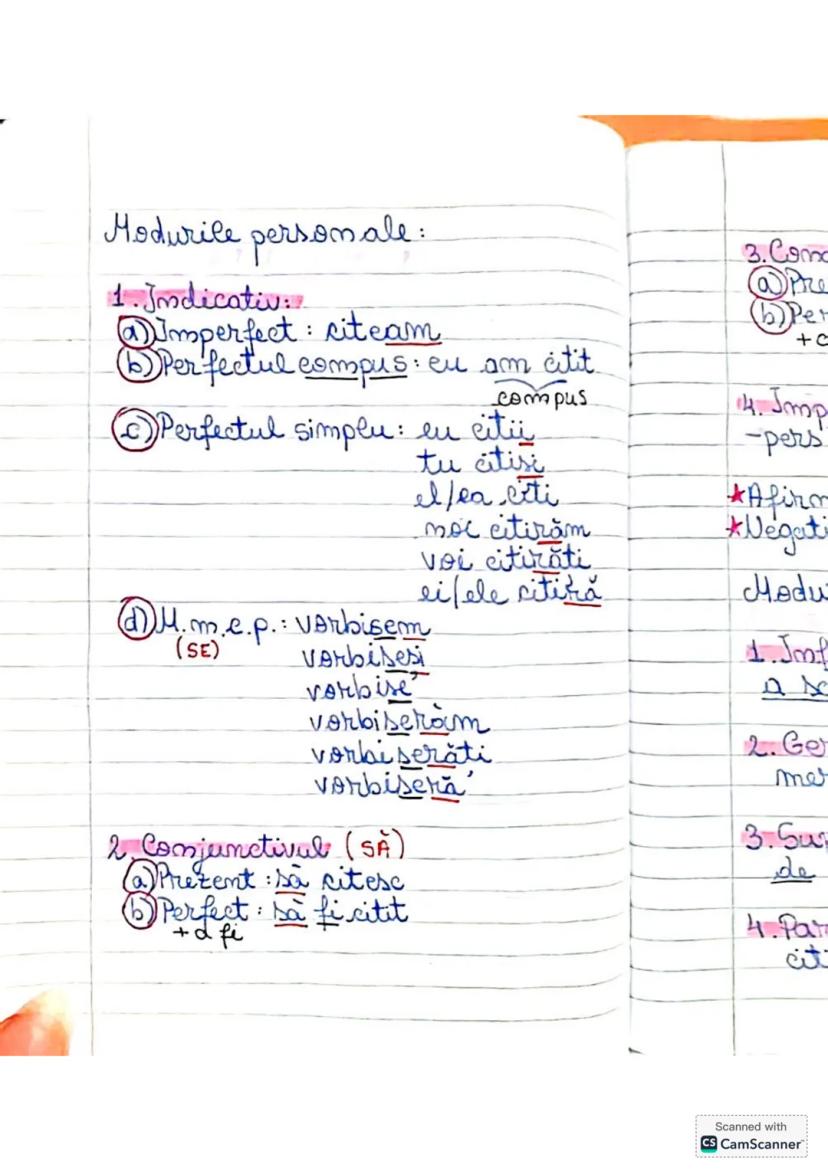 Modurile personale:
1. Indicativ:
a) Imperfect: citeam
b) Perfectul compus: eu am citit
compus
c) Perfectul simplu: eu citii
tu citisi
el/ea citi
noi citirăm
voi citirăti
ei/ele citiră
d) M.m.c.p.: vorbisem
(SE)
vorbisesi
vorbise
vorbiserăm
vorbiserăti
vorbiseră
2. Conjunctivul (SĂ)
a) Prezent: să citesc
b) Perfect: să fi citit
+ a fi
3. Con
a) Pre
b) Per
+ c
4. Imp
- pers
★ Afirm
★ Negati
Modu
1. Inf
a sc
2. Ger
mer
3. Su
de
4. Par
cit
Scanned with
CS CamScanner